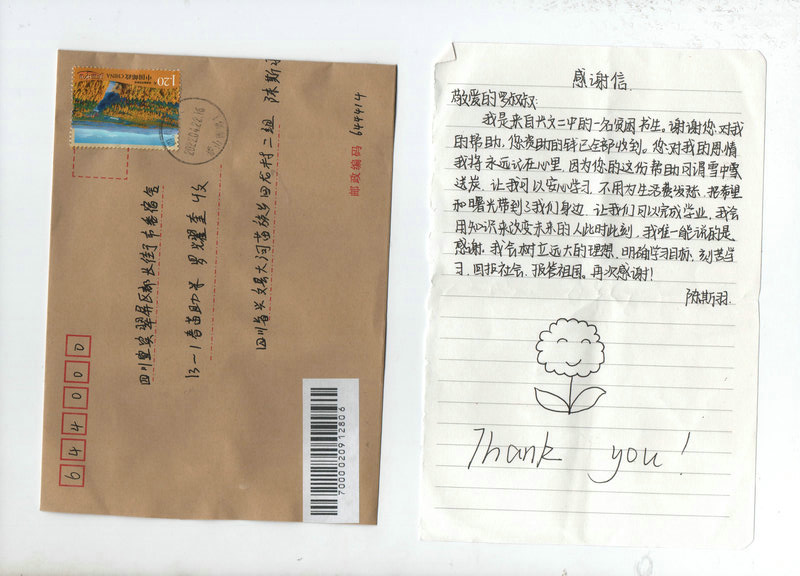 644000
四川宜宾翠屏区都长街1市委宿舍
13-1春苗助学 罗耀奎 收
四川省兴文县大河苗族乡回龙村二组 陈斯羽
邮政编码 644414
1.20
中国邮政 CHINA
70000209112806
感谢信
敬爱的罗叔叔:
我是来自兴文二中的一名贫困书生。谢谢您对我
的帮助,您资助的钱已全部收到。您对我的恩情
我将永远记在心里,因为您的这份帮助可谓雪中雪
送炭,让我可以安心学习,不用为生活费发愁,把希望
和曙光带到了我们身边,让我们可以完成学业,我会
用知识来改变未来的人此时此刻,我唯一能说的是
感谢。我会树立远大的理想,明确学习目标,刻苦学
习,回报社会,报答祖国。再次感谢!
陈斯羽.
Thank you!